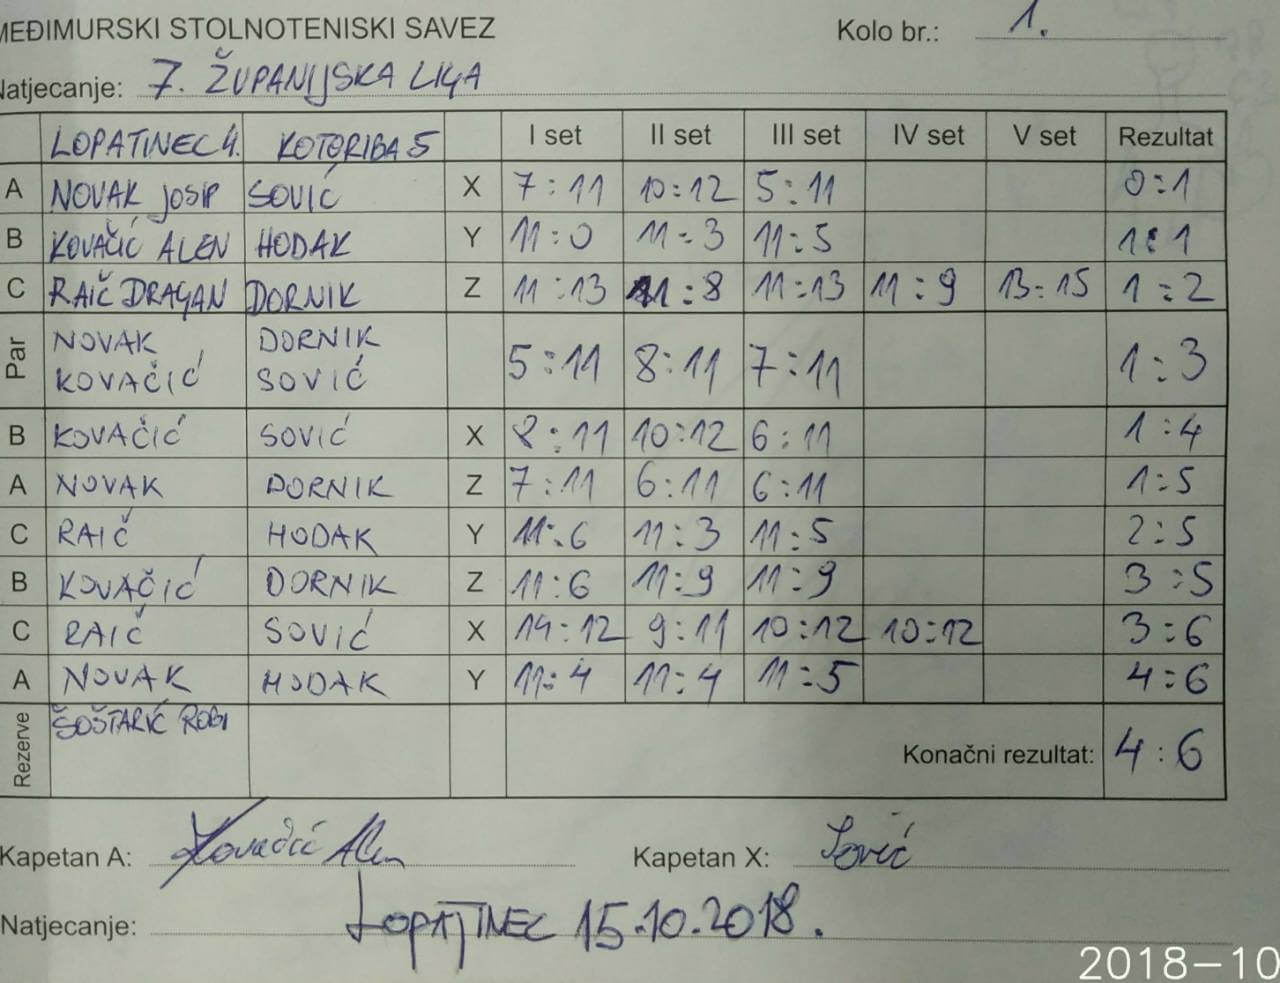 MEĐIMURSKI STOLNOTENISKI SAVEZ Kolo br.: 1.
Natjecanje: 7. ŽUPANIJSKA LIGA
LOPATINEC 4. KOTORIBA 5 I set II set III set IV set V set Rezultat
A NOVAK JOSIP SOVIĆ X 7:11 10:12 5:11 0:1
B KOVAČIĆ ALEN HODAK Y 11:0 11:3 11:5 1:1
C RAIČ DRAGAN DORNIK Z 11:13 11:8 11:13 11:9 13:15 1:2
Par NOVAK DORNIK
KOVAČIĆ SOVIĆ 5:11 8:11 7:11 1:3
B KOVAČIĆ SOVIĆ X 8:11 10:12 6:11 1:4
A NOVAK DORNIK Z 7:11 6:11 6:11 1:5
C RAIČ HODAK Y 11:6 11:3 11:5 2:5
B KOVAČIĆ DORNIK Z 11:6 11:9 11:9 3:5
C RAIČ SOVIĆ X 14:12 9:11 10:12 10:12 3:6
A NOVAK HODAK Y 11:4 11:4 11:5 4:6
Rezerve ŠOŠTARIĆ ROBI Konačni rezultat: 4:6
Kapetan A: Kovačić Alen Kapetan X: Sović
Natjecanje: LOPATINEC 15.10.2018.
2018-10